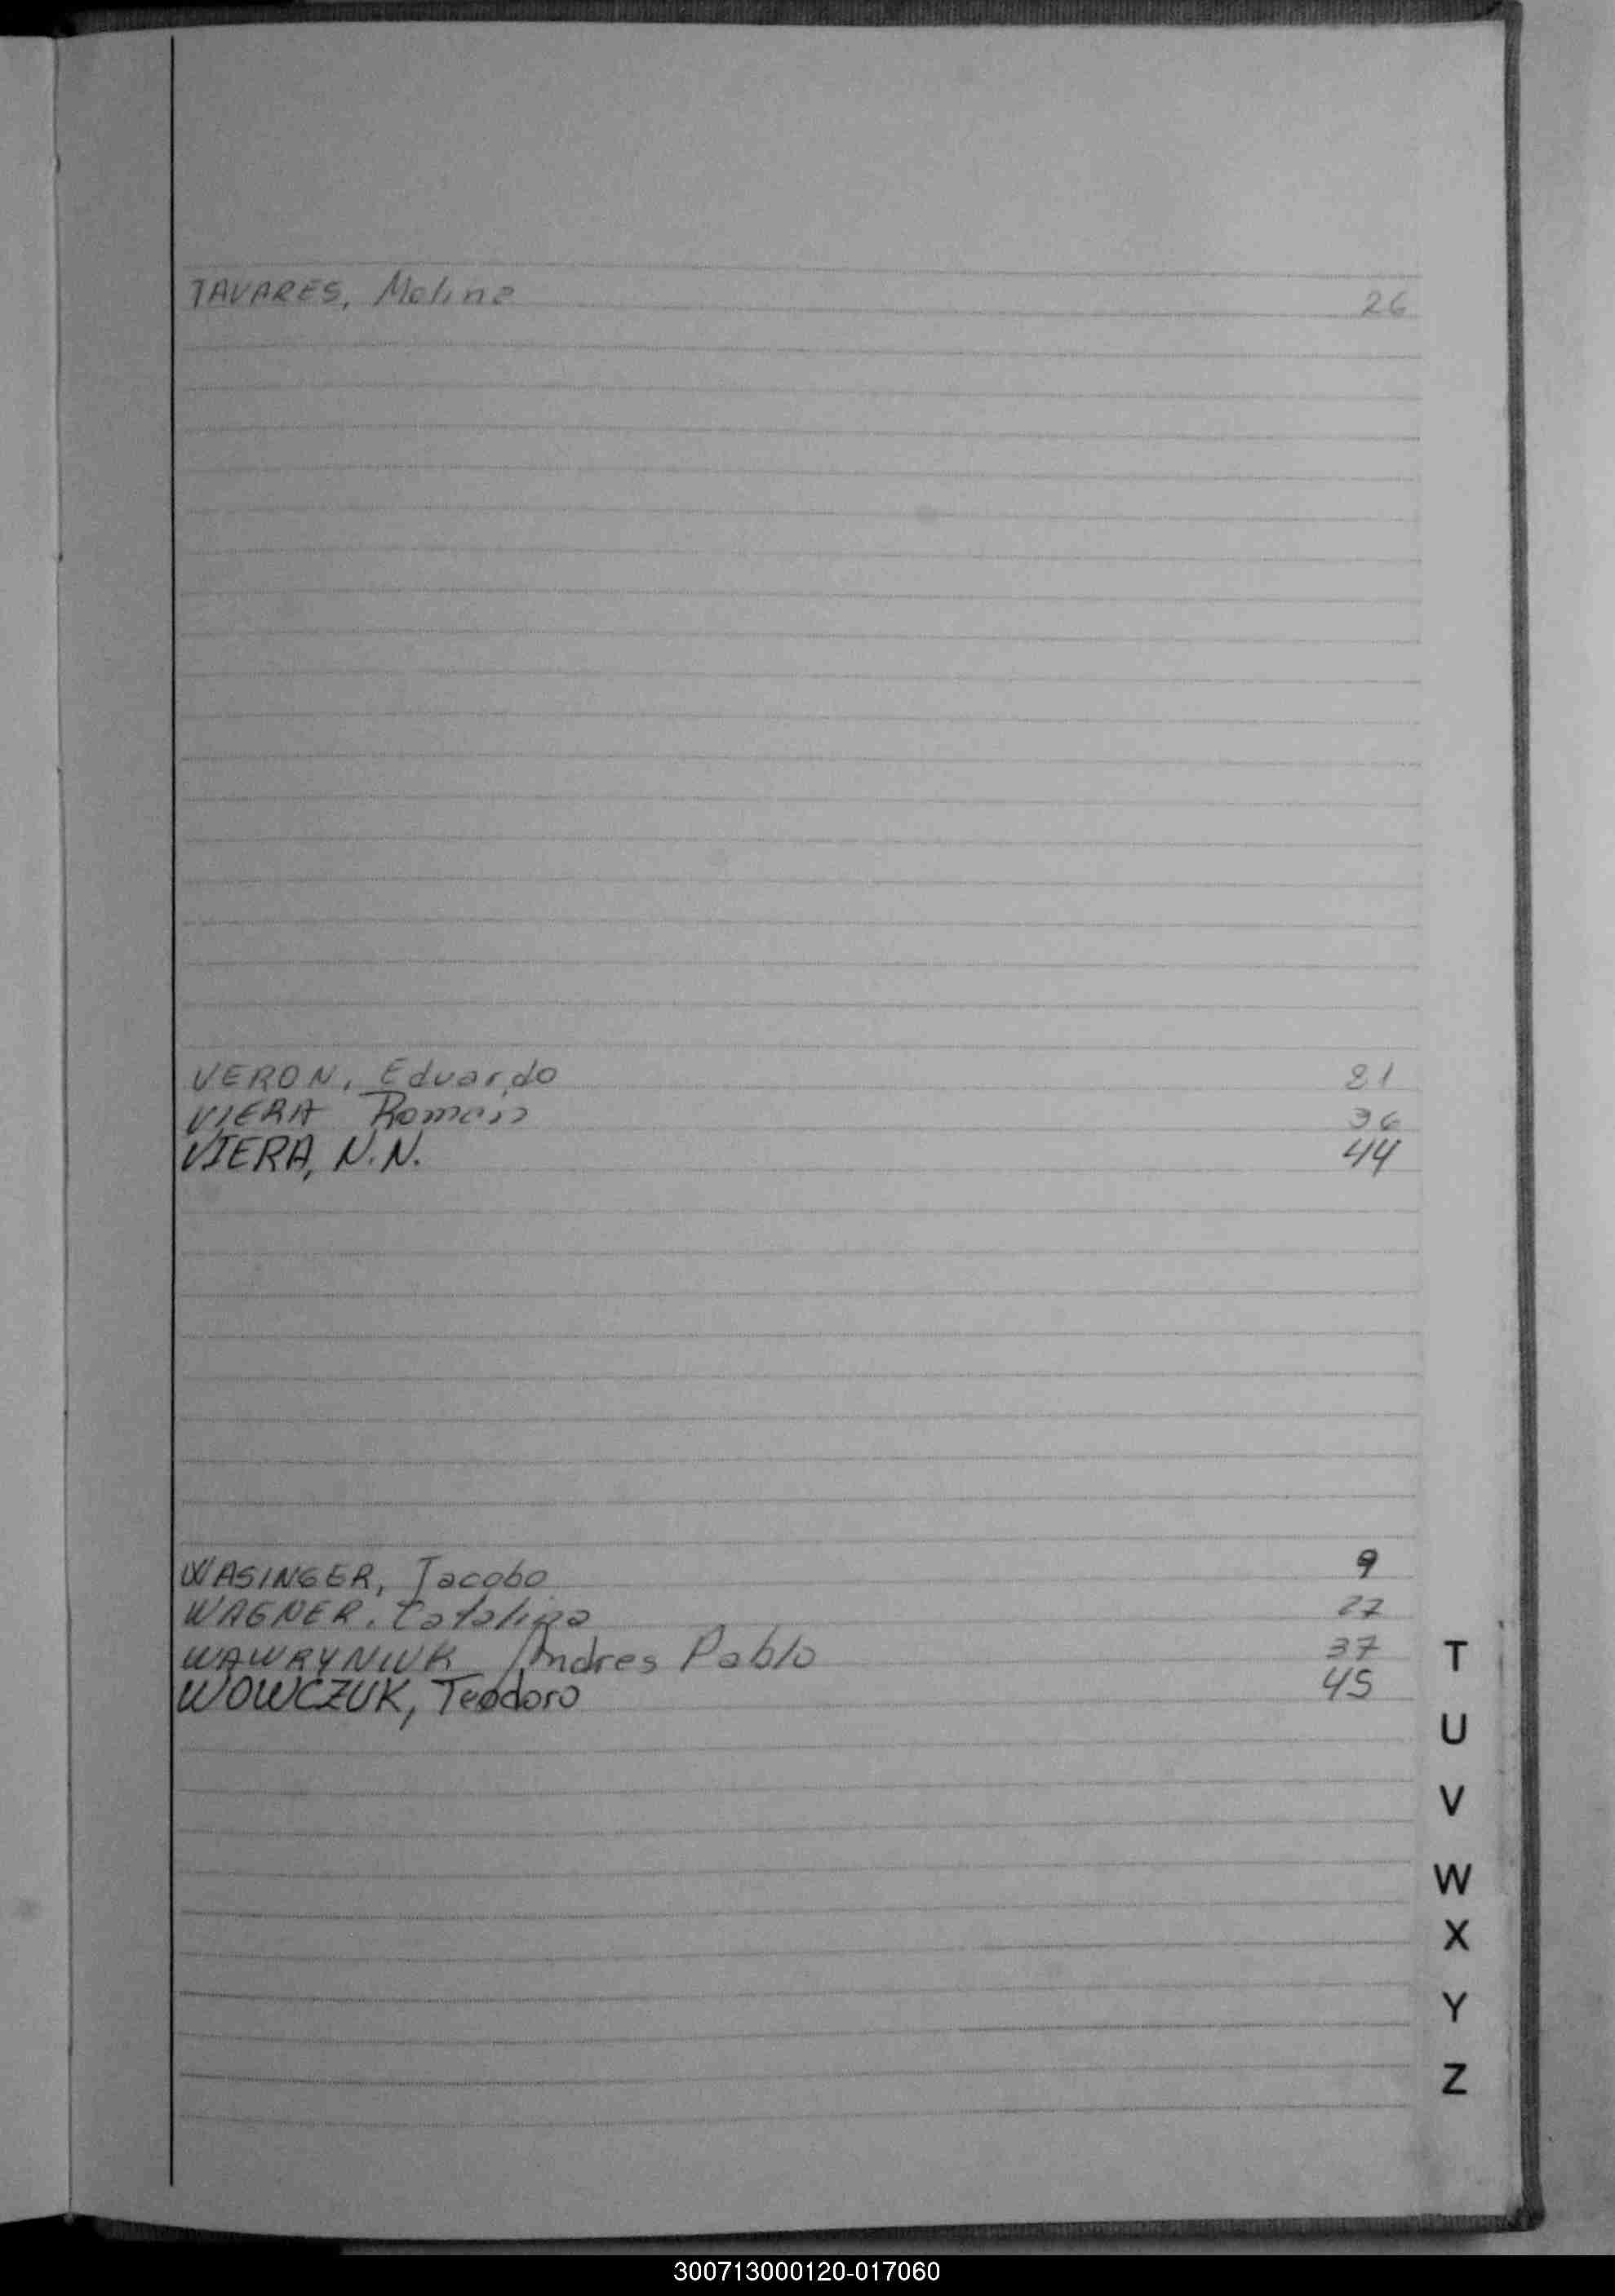 TAVARES, Melina 26
VERON, Eduardo 21
VIERA Roman 36
VIERA, N.N. 44
WASINGER, Jacobo 9
WAGNER. Catalina 27
WAWRYNIUK Andres Pablo 37
WOWCZUK, Teodoro 45
T
U
V
W
X
Y
Z
300713000120-017060